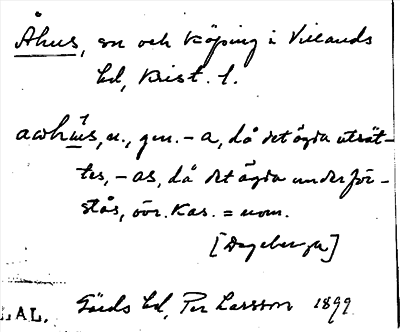 Åhus, sn och köping i Villands
hd, Krist. l.
awhùs, n., gen. -a, då det ägda utsät-
tes, -as, då det ägda underför-
stås, övr. kas. = nom.
[Degeberga]
LAL. Gärds hd, Per Larsson 1899